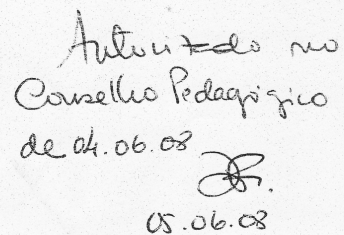 Autorizado no
Conselho Pedagógico
de 04.06.08
05.06.08